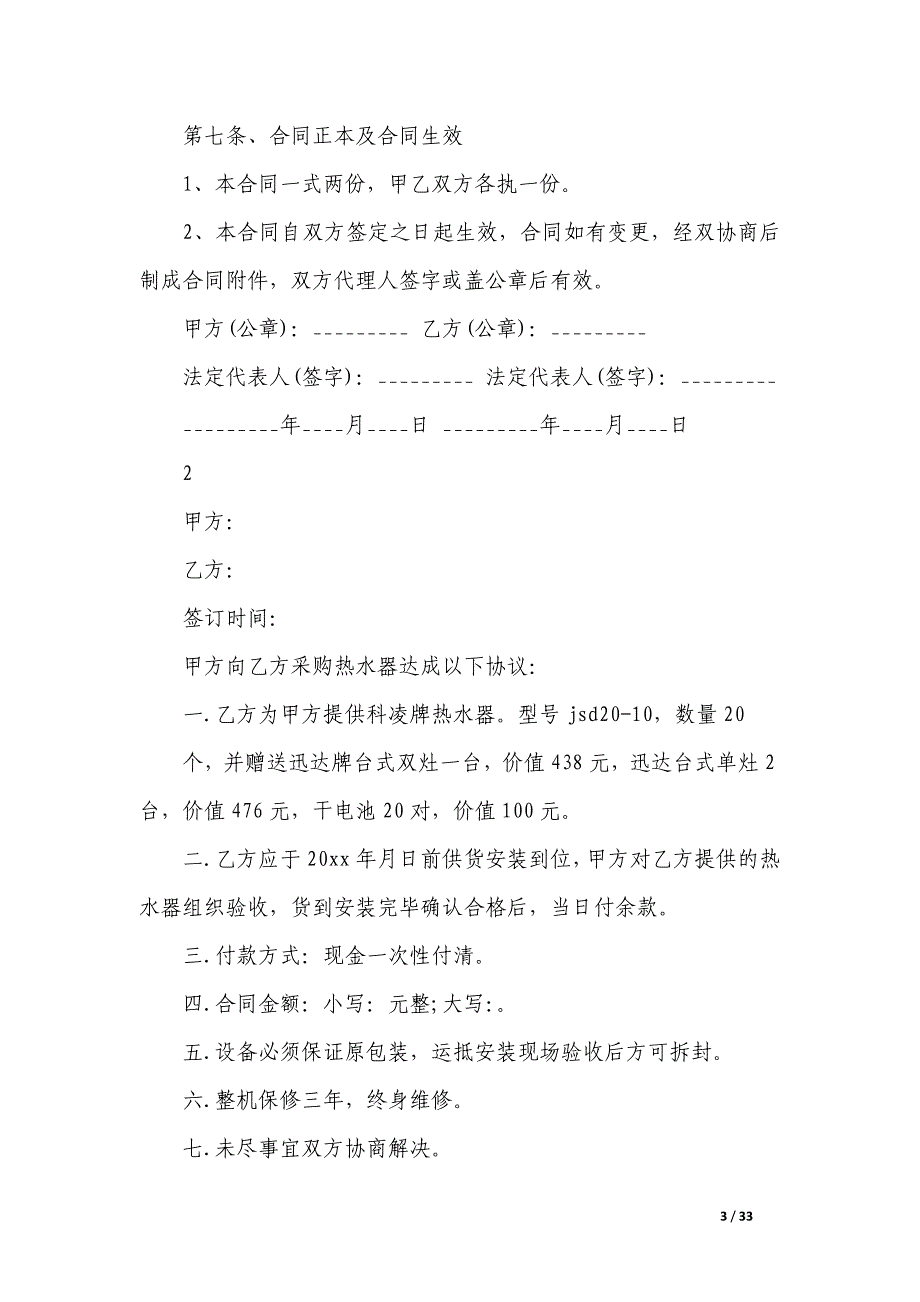 第七条、合同正本及合同生效
1、本合同一式两份，甲乙双方各执一份。
2、本合同自双方签定之日起生效，合同如有变更，经双协商后
制成合同附件，双方代理人签字或盖公章后有效。
甲方(公章)：_________ 乙方(公章)：_________
法定代表人(签字)：_________ 法定代表人(签字)：_________
_________年____月____日 _________年____月____日
2
甲方：
乙方：
签订时间：
甲方向乙方采购热水器达成以下协议：
一.乙方为甲方提供科凌牌热水器。型号 jsd20-10，数量 20
个，并赠送迅达牌台式双灶一台，价值 438 元，迅达台式单灶 2
台，价值 476 元，干电池 20 对，价值 100 元。
二.乙方应于 20xx 年月日前供货安装到位，甲方对乙方提供的热
水器组织验收，货到安装完毕确认合格后，当日付余款。
三.付款方式：现金一次性付清。
四.合同金额：小写：元整;大写：。
五.设备必须保证原包装，运抵安装现场验收后方可拆封。
六.整机保修三年，终身维修。
七.未尽事宜双方协商解决。
3 / 33